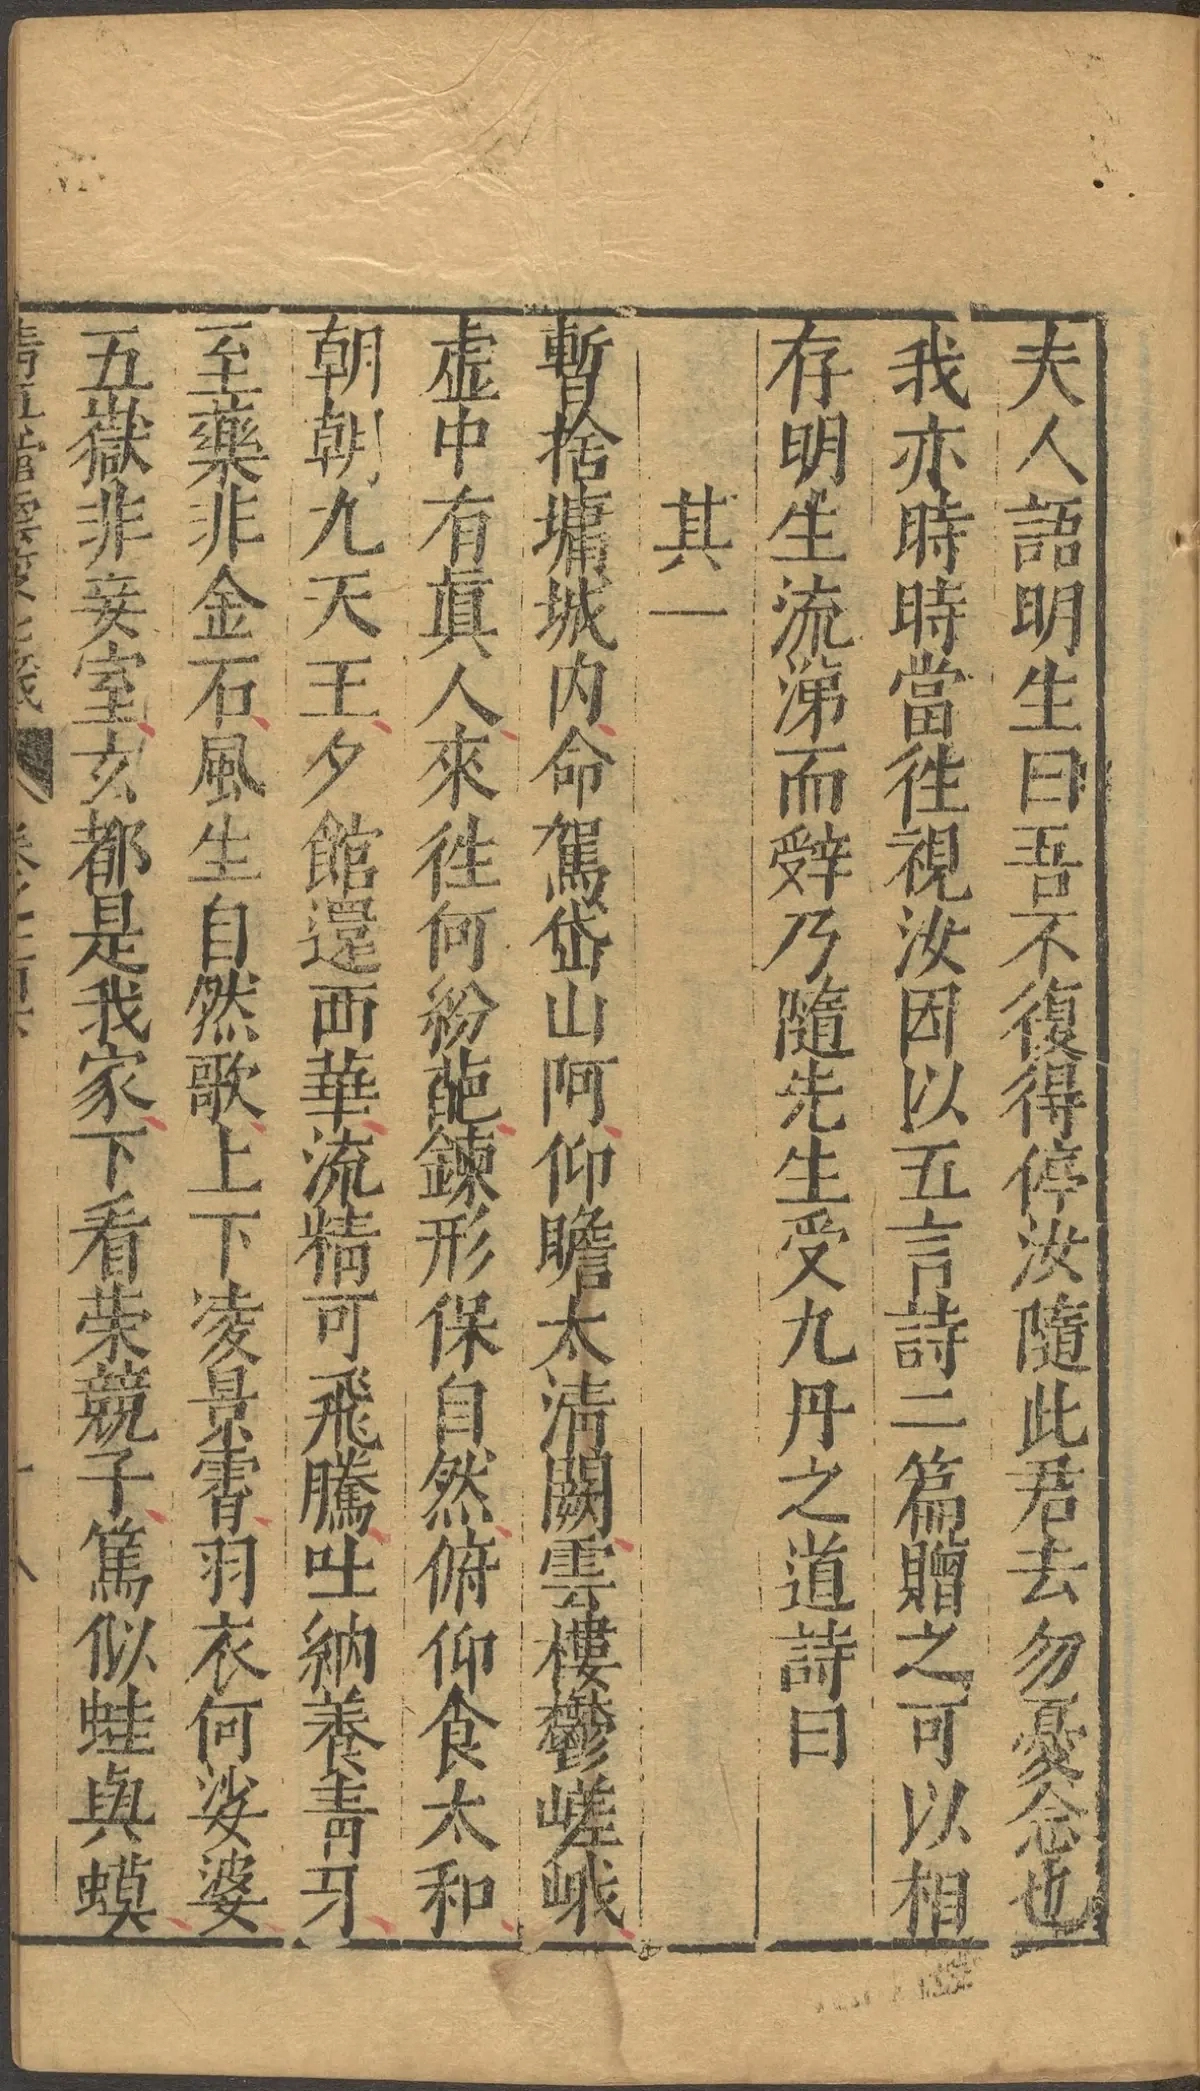 夫人語明生曰吾不復得停汝隨此君去勿憂念也
我亦時時當徃視汝因以五言詩二篇贈之可以相
存明生流涕而辤乃隨先生受九丹之道詩曰
其一
暫捨墉城内命駕岱山阿仰瞻太淸闕雲樓鬱嵯峨
虚中有眞人來徃何紛葩鍊形保自然俯仰食太和
朝朝九天王夕館還西華流精可飛騰吐納養青牙
至藥非金石風生自然歌上下凌景霄羽衣何娑婆
五嶽非妾室玄都是我家下看荣競子篤似蛙與蟆